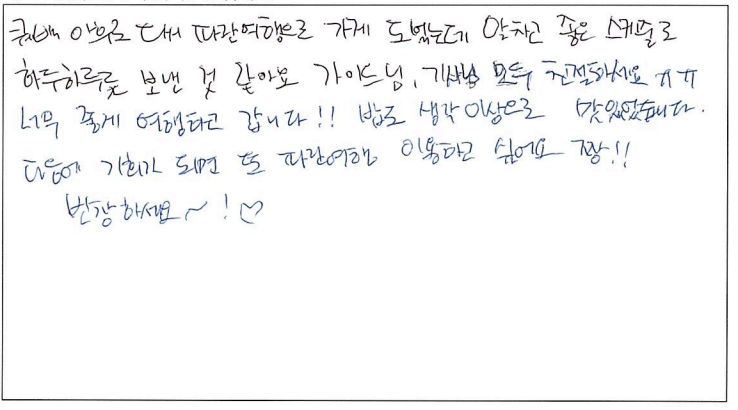 파란여행으로 가게 되었는데 알차고 좋은 스케쥴로
하루하루를 보낸 것 같아요 가이드님, 기사님 모두 친절하세요 ㅠㅠ
너무 좋게 여행하고 갑니다!! 밥도 생각이상으로 맛있었습니다.
다음에 기회가 되면 또 파란여행 이용하고 싶어요 짱!!
번창하세요~!♡